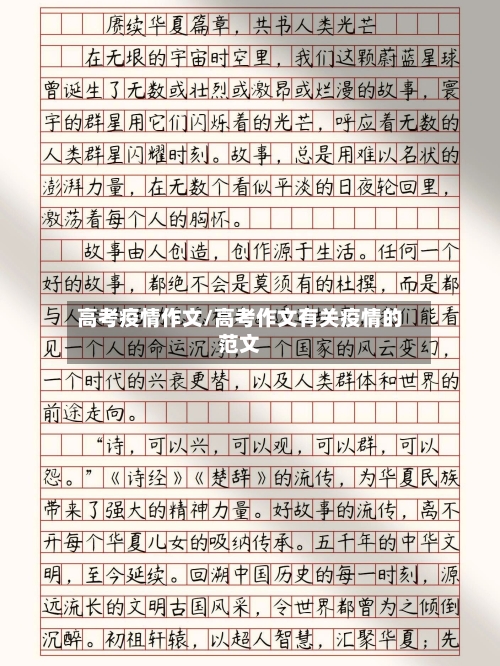 赓续华夏篇章，共书人类光芒
在无垠的宇宙时空里，我们这颗蔚蓝星球
曾诞生了无数或壮烈或激昂或烂漫的故事，寰
宇的群星用它们闪烁着的光芒，呼应着无数的
人类群星闪耀时刻。故事，总是用难以名状的
澎湃力量，在无数个看似平淡的日夜轮回里，
激荡着每个人的胸怀。
故事由人创造，创作源于生活。任何一个
好的故事，都绝不会是莫须有的杜撰，而是都
与人
们能看
高考疫情作文/高考作文有关疫情的
范文
见一个人的命运沉浮
一个国家的风云变幻，
一个时代的兴衰更替，以及人类群体和世界的
前途走向。
“诗，可以兴，可以观，可以群，可以
怨。”《诗经》《楚辞》的流传，为华夏民族
带来了强大的精神力量。好故事的流传，离不
开每个华夏儿女的吸纳传承。五千年的中华文
明，至今延续。回溯中国历史的每一时刻，源
远流长的文明古国风采，令世界都曾为之倾倒
沉醉。初祖轩辕，以超人智慧，汇聚华夏；先